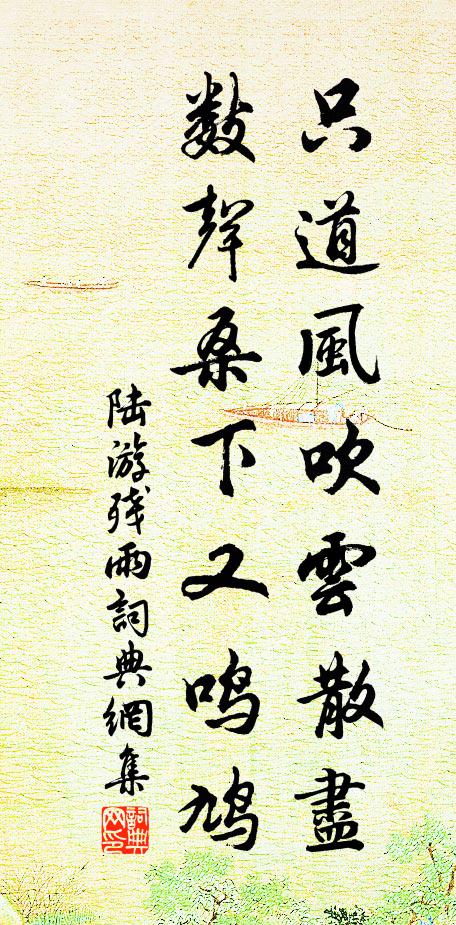 只道風吹雲散盡
數聲桑下又鳴鳩
陆游残雨詞典網集
詞典网印